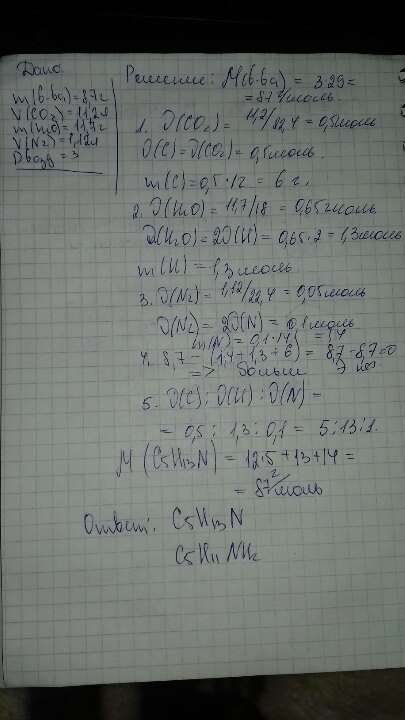 Дано:
m(в-ва) = 8,7г
V(CO2) = 11,2л
m(H2O) = 11,7г
V(N2) = 1,12л
Dвозд = 3
Решение: M(в-ва) = 3·29 =
= 87 г/моль.
1. ν(CO2) = 11,2/22,4 = 0,5моль
ν(C) = ν(CO2) = 0,5моль.
m(C) = 0,5·12 = 6 г.
2. ν(H2O) = 11,7/18 = 0,65 моль
ν(H2O) = 2ν(H) = 0,65·2 = 1,3моль
m(H) = 1,3моль.
3. ν(N2) = 1,12/22,4 = 0,05моль
ν(N2) = 2ν(N) = 0,1моль
m(N) = 0,1·14 = 1,4
4. 8,7 - (1,4+1,3+6) = 8,7-8,7=0
=> больше Э нет.
5. ν(C) : ν(H) : ν(N) =
= 0,5 : 1,3 : 0,1 = 5:13:1.
M (C5H13N) = 12·5 + 13 + 14 =
= 87 г/моль
Ответ: C5H13N
C5H11NH2